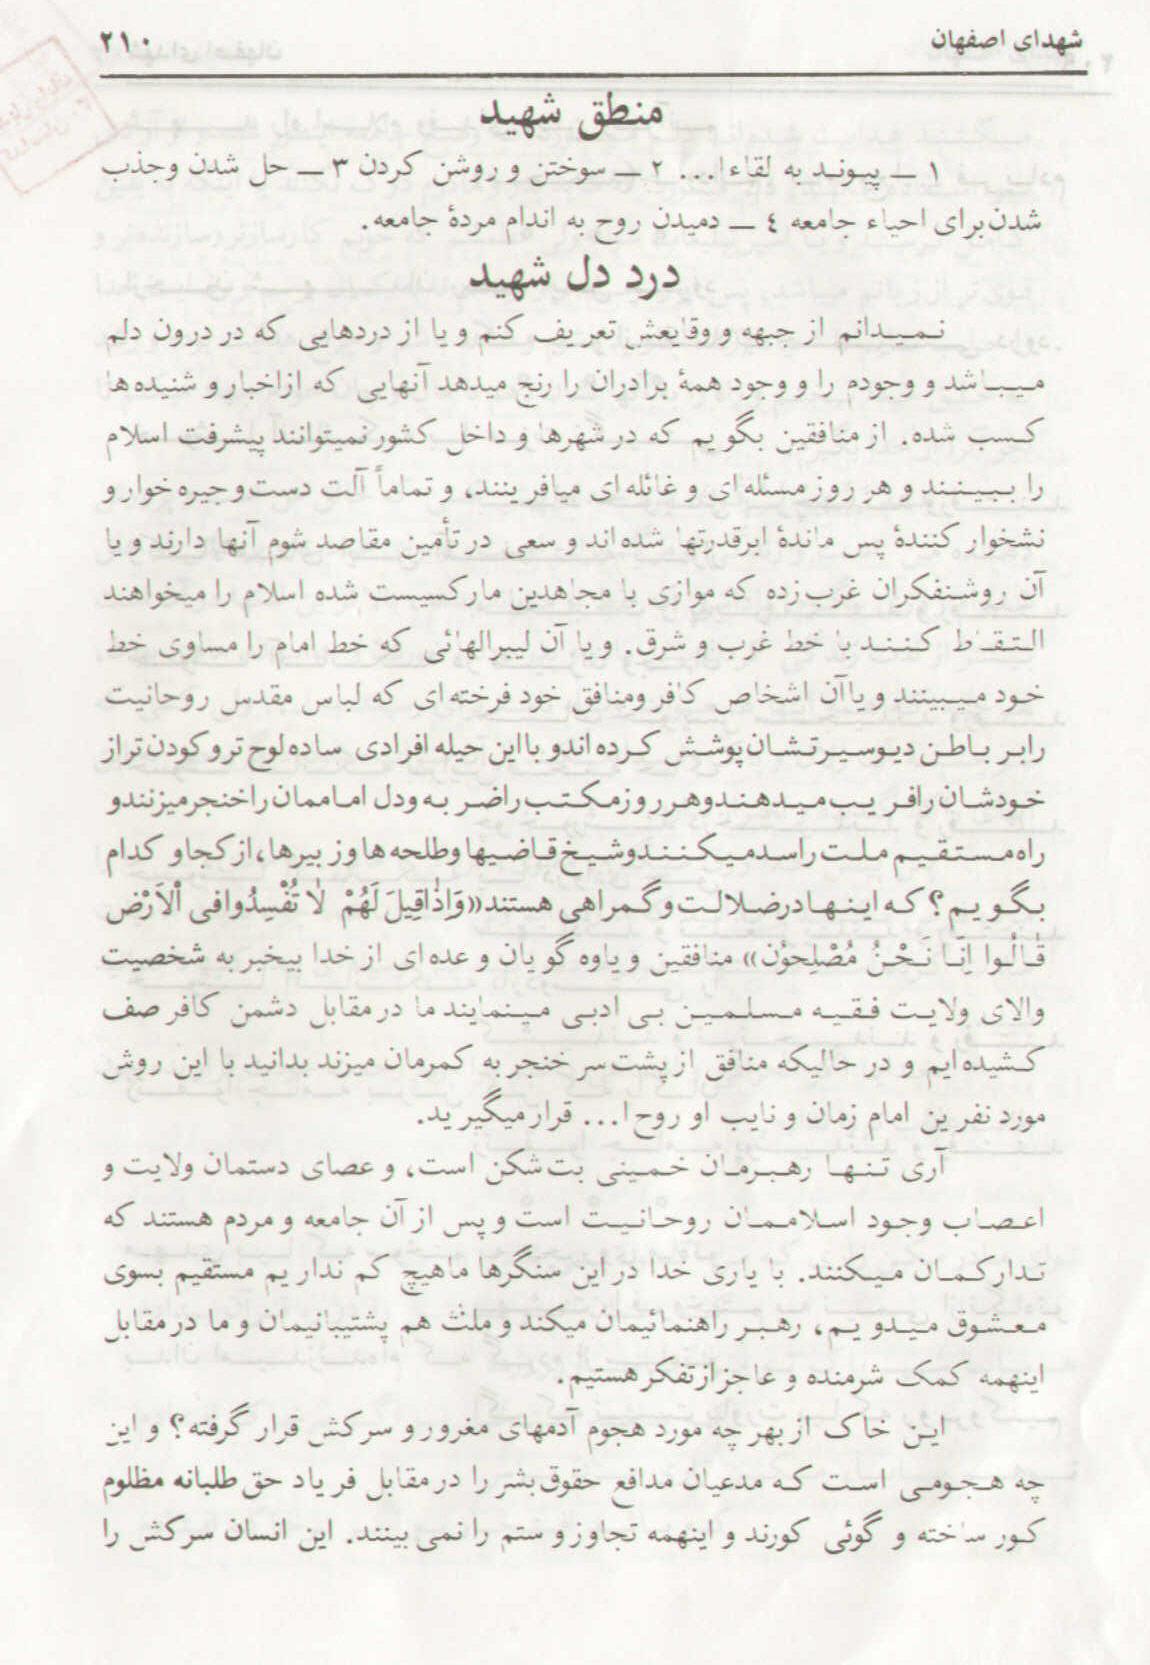 شهدای اصفهان ۲۱۰
منطق شهید
۱ ــ پیوند به لقاءا... ۲ ــ سوختن و روشن کردن ۳ ــ حل شدن وجذب
شدن برای احیاء جامعه ٤ ــ دمیدن روح به اندام مردهٔ جامعه.
درد دل شهید
نمیدانم از جبهه و وقایعش تعریف کنم و یا از دردهایی که در درون دلم
میباشد و وجودم را و وجود همهٔ برادران را رنج میدهد آنهایی که ازاخبار و شنیده ها
کسب شده. از منافقین بگویم که در شهرها و داخل کشور نمیتوانند پیشرفت اسلام
را ببینند و هر روز مسئله ای و غائله ای میافرینند، و تماماً آلت دست وجیره خوار و
نشخوار کنندهٔ پس ماندهٔ ابرقدرتها شده اند و سعی در تأمین مقاصد شوم آنها دارند و یا
آن روشنفکران غرب زده که موازی با مجاهدین مارکسیست شده اسلام را میخواهند
التقاط کنند با خط غرب و شرق. و یا آن لیبرالهائی که خط امام را مساوی خط
خود میبینند و یا آن اشخاص کافر ومنافق خود فرخته ای که لباس مقدس روحانیت
رابر باطن دیوسیرتشان پوشش کرده اندو بااین حیله افرادی ساده لوح تر و کودن تر از
خودشان رافریب میدهند وهر روز مکتب راضربه ودل اماممان راخنجر میزنند و
راه مستقیم ملت راسد میکنند وشیخ قاضیها وطلحه ها وزبیرها، از کجا و کدام
بگویم؟ که اینها در ضلالت و گمراهی هستند «وَاِذٰاقِیلَ لَهُمْ لاٰ تُفْسِدُوافی اْلاَرْض
قٰالُوا اِنَّا نَحْنُ مُصْلِحوُن» منافقین و یاوه گویان و عده ای از خدا بیخبر به شخصیت
والای ولایت فقیه مسلمین بی ادبی مینمایند ما در مقابل دشمن کافر صف
کشیده ایم و در حالیکه منافق از پشت سر خنجر به کمرمان میزند بدانید با این روش
مورد نفرین امام زمان و نایب او روح ا... قرار میگیرید.
آری تنها رهبرمان خمینی بت شکن است، و عصای دستمان ولایت و
اعصاب وجود اسلاممان روحانیت است و پس از آن جامعه و مردم هستند که
تدارکمان میکنند. با یاری خدا در این سنگرها ماهیچ کم نداریم مستقیم بسوی
معشوق میدویم، رهبر راهنمائیمان میکند و ملت هم پشتیبانیمان و ما در مقابل
اینهمه کمک شرمنده و عاجز از تفکر هستیم.
این خاک از بهر چه مورد هجوم آدمهای مغرور و سرکش قرار گرفته؟ و این
چه هجومی است که مدعیان مدافع حقوق بشر را در مقابل فریاد حق طلبانه مظلوم
کور ساخته و گوئی کورند و اینهمه تجاوز و ستم را نمی بینند. این انسان سرکش را